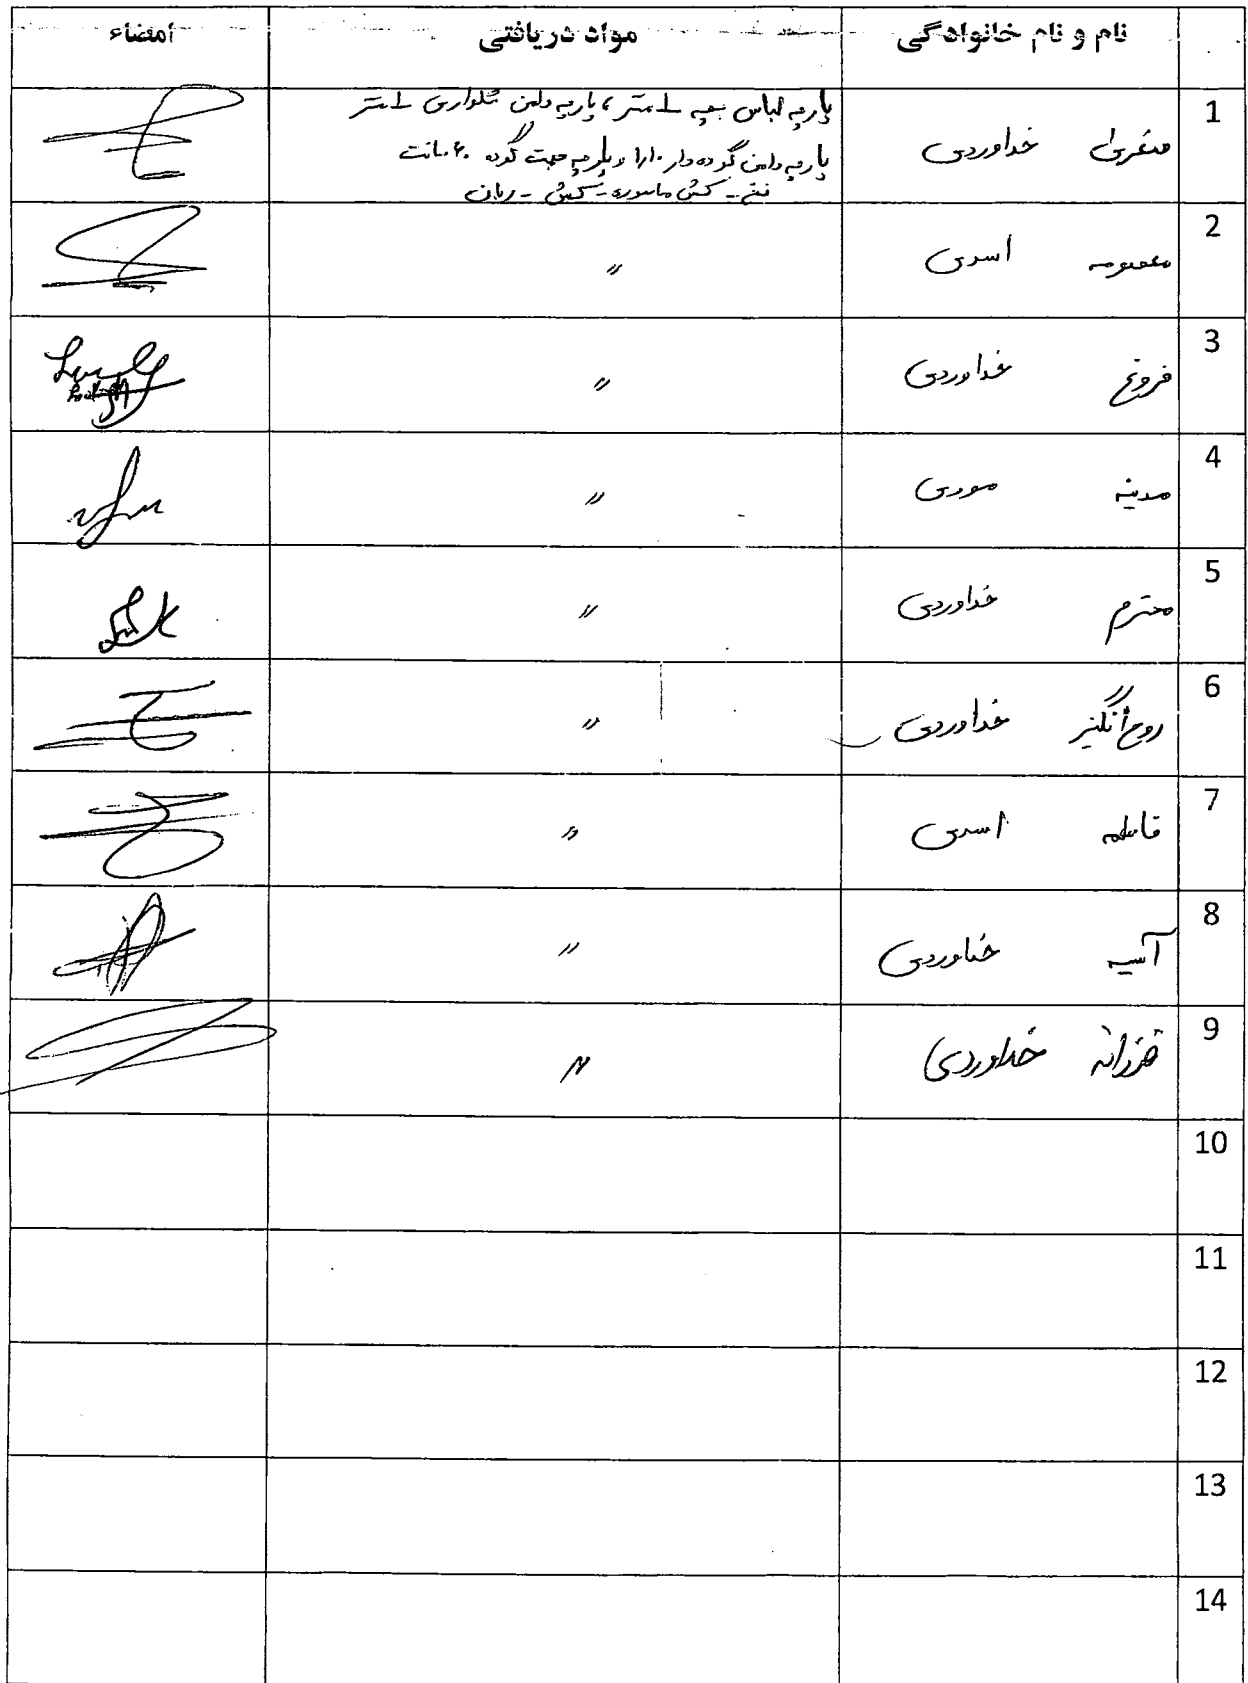 نام و نام خانوادگی مواد دریافتی امضاء
1 خداوردی پارچه لباس بچه متر، پارچه دامن شلواری متر
پارچه دامن گرده دار و پارچه جهت گرده ۶۰ سانت
نخ - کش ماسوره - کش - ربان
2 معصومه اسدی 〃
3 فروغ خداوردی 〃
4 مدینه 〃
5 محترم خداوردی 〃
6 روح انگیز خداوردی 〃
7 فاطمه اسدی 〃
8 آسیه خداوردی 〃
9 فرزانه خداوردی 〃
10
11
12
13
14